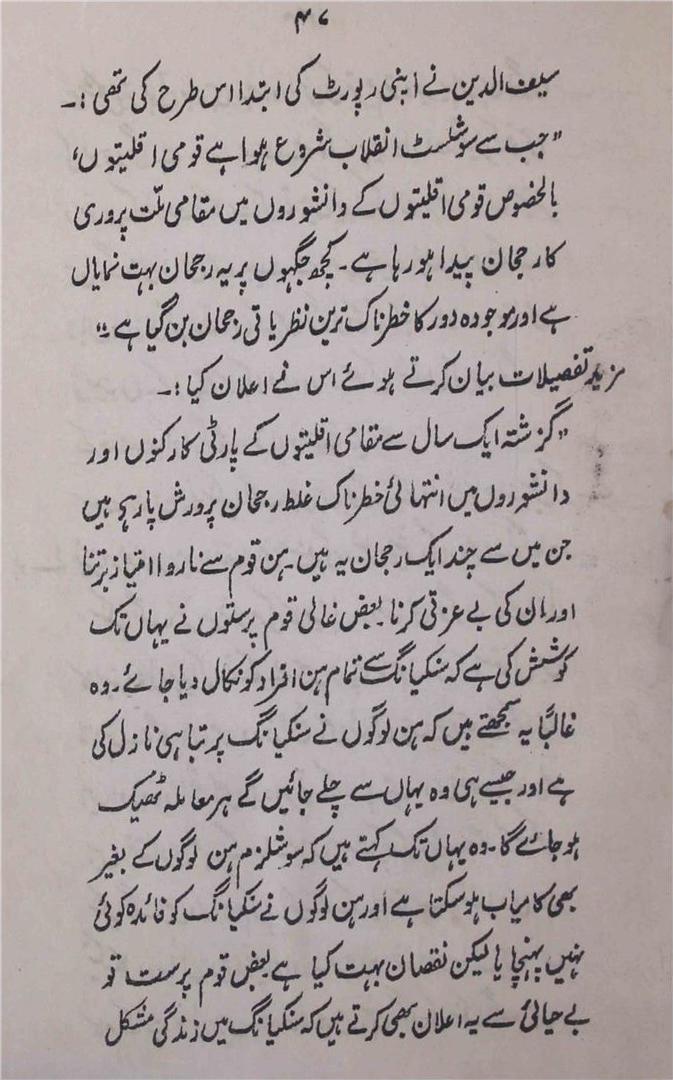 ۴۷
سیف الدین نے اپنی رپورٹ کی ابتدا اس طرح کی تھی :۔
”جب سے سوشلسٹ انقلاب شروع ہوا ہے قومی اقلیتوں،
بالخصوص قومی اقلیتوں کے دانشوروں میں مقامی ملّت پروری
کا رجحان پیدا ہو رہا ہے۔ کچھ جگہوں پر یہ رجحان بہت نمایاں
ہے اور موجودہ دور کا خطرناک ترین نظریاتی رجحان بن گیا ہے۔“
مزید تفصیلات بیان کرتے ہوئے اس نے اعلان کیا :۔
”گزشتہ ایک سال سے مقامی اقلیتوں کے پارٹی کارکنوں اور
دانشوروں میں انتہائی خطرناک غلط رجحان پرورش پا رہے ہیں
جن میں سے چند ایک رجحان یہ ہیں۔ ہن قوم سے ناروا امتیاز برتنا
اور ان کی بے عزتی کرنا بعض غالی قوم پرستوں نے یہاں تک
کوشش کی ہے کہ سنکیانگ سے تمام ہن افراد کو نکال دیا جائے۔ وہ
غالباً یہ سمجھتے ہیں کہ ہن لوگوں نے سنکیانگ پر تباہی نازل کی
ہے اور جیسے ہی وہ یہاں سے چلے جائیں گے ہر معاملہ ٹھیک
ہو جائے گا۔ وہ یہاں تک کہتے ہیں کہ سوشلزم ہن لوگوں کے بغیر
بھی کامیاب ہو سکتا ہے اور ہن لوگوں نے سنکیانگ کو فائدہ کوئی
نہیں پہنچایا لیکن نقصان بہت کیا ہے بعض قوم پرست تو
بے حیائی سے یہ اعلان بھی کرتے ہیں کہ سنکیانگ میں زندگی مشکل